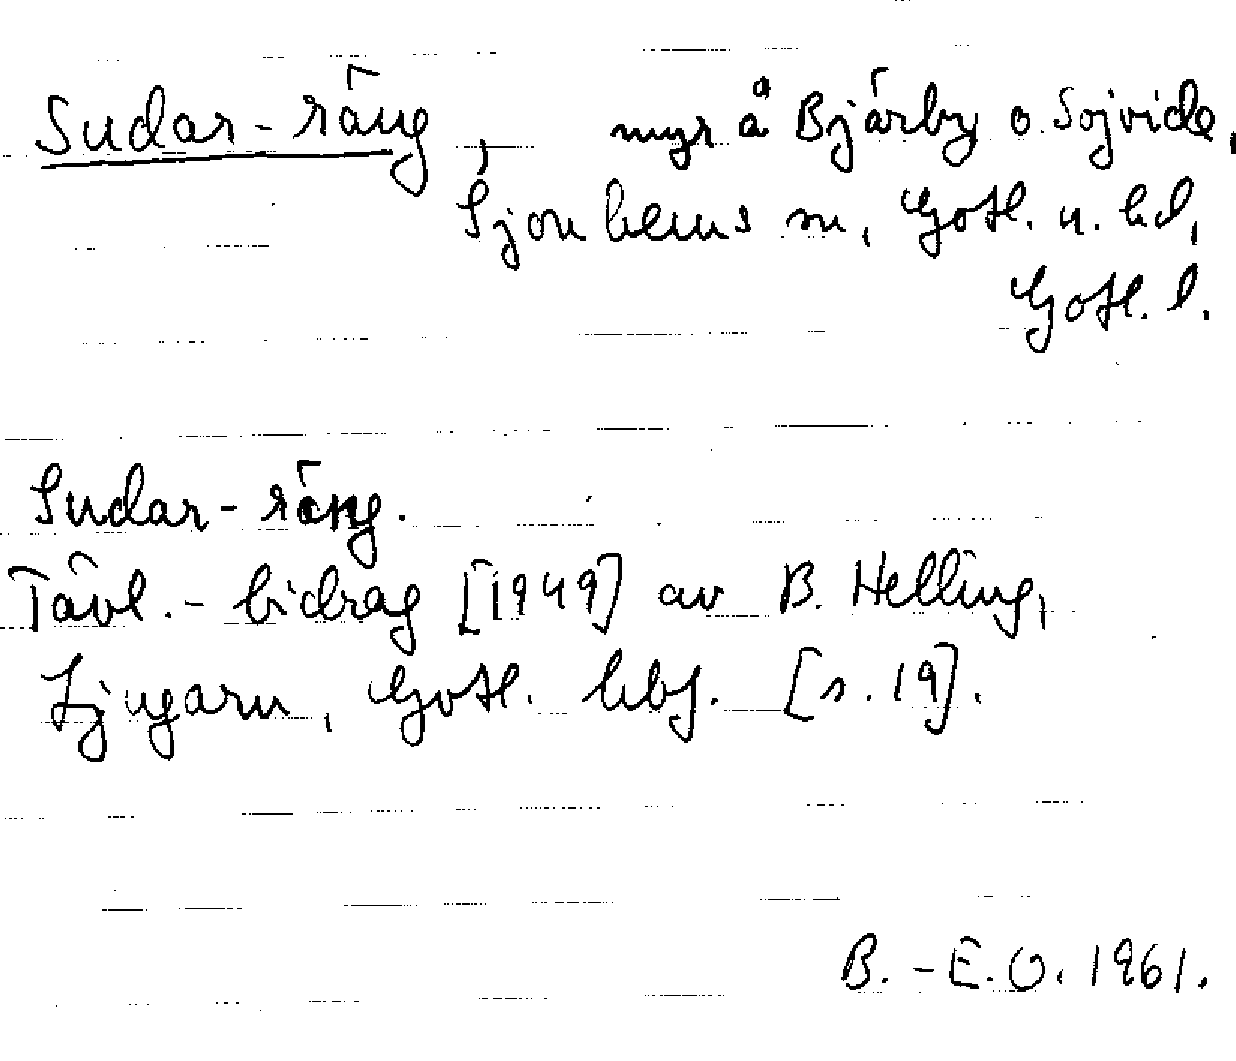 Sudar-räng, myr å Bjärby o. Sojvide,
Sjonhems sn, Gotl. n. hd,
Gotl. l.
Sudar-räng.
Tävl.-bidrag [1949] av B. Helling,
Ljugarn, Gotl. hbf. [s. 19].
B.-E.O. 1961.